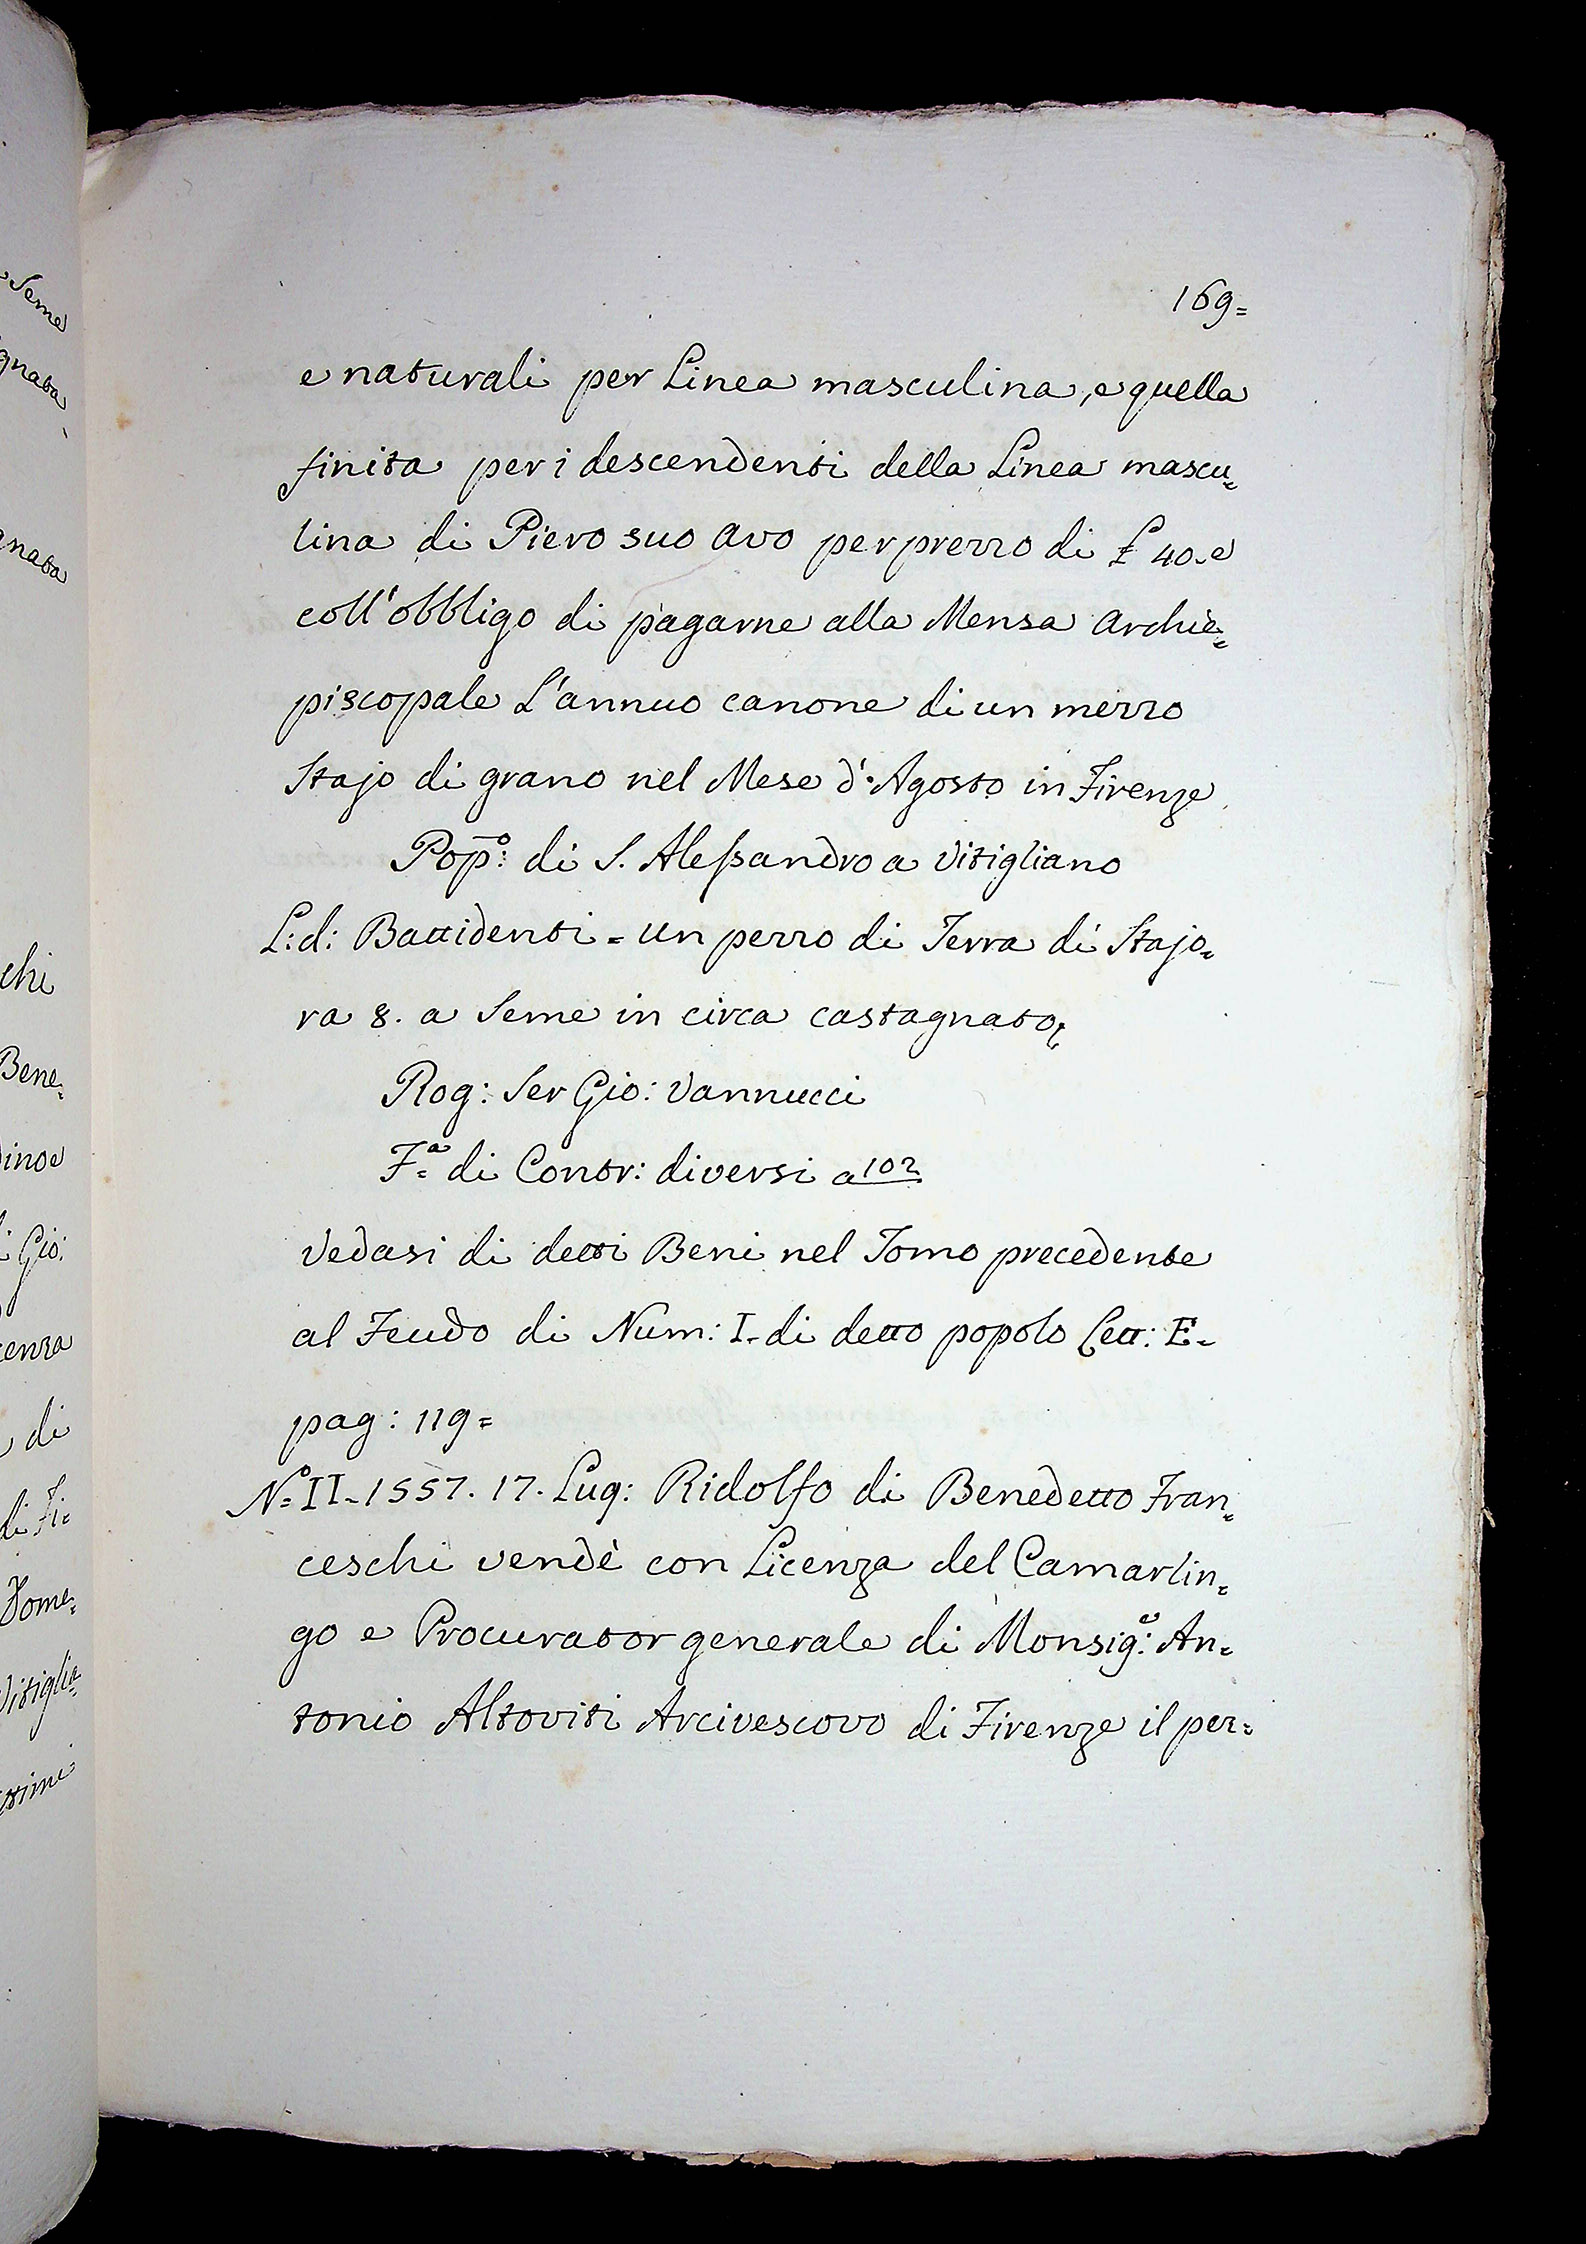 169=
e naturali per Linea masculina, e quella
finita per i descendenti della Linea mascu=
lina di Piero suo Avo per prezzo di £ 40. e
coll'obbligo di pagarne alla Mensa Archie=
piscopale L'annuo canone di un mezzo
Stajo di grano nel Mese d'Agosto in Firenze
Popº: di S. Alessandro a Vitigliano
L: d: Battidenti = Un pezzo di Terra di Stajo=
ra 8. a Seme in circa castagnato,
Rog: Ser Gio: Vannucci
Fª di Contr: diversi a 102
Vedasi di detti Beni nel Tomo precedente
al Feudo di Num: I. di detto popolo Lett: E.
pag: 119=
Nº II. 1557. 17. Lug: Ridolfo di Benedetto Fran=
ceschi vendè con Licenza del Camarlin=
go e Procurator generale di Monsigͤ: An=
tonio Altoviti Arcivescovo di Firenze il per=
Seme
gnata
gnata
chi
Bene=
Gio:
di
di Fi=
Dome=
Vitiglia=